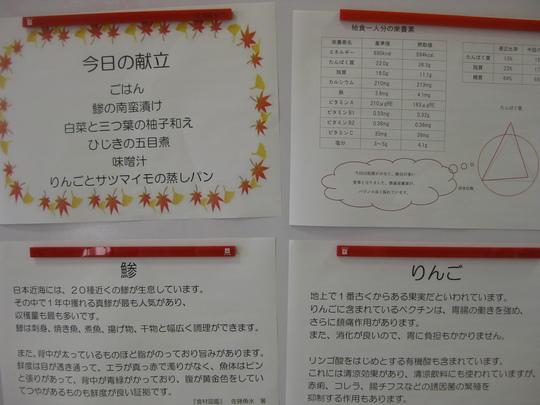 今日の献立
ごはん
鯵の南蛮漬け
白菜と三つ葉の柚子和え
ひじきの五目煮
味噌汁
りんごとサツマイモの蒸しパン
給食一人分の栄養素
栄養素名 基準値 摂取値
エネルギー
たんぱく質 22.0g 26.3g
脂質 18.0g 11.1g
カルシウム 210mg 213mg
鉄 3.8mg 4.1mg
ビタミンA 210μgRE 193μgRE
ビタミンB1
ビタミンB2
ビタミンC
塩分 3~5g 4.1g
たんぱく質
脂質
糖質
たんぱく質
鯵
日本近海には、20種近くの鯵が生息しています。
その中で1年中獲れる真鯵が最も人気があり、
収穫量も最も多いです。
鯵は刺身、焼き魚、煮魚、揚げ物、干物と幅広く調理ができます。
また、背中が太っているものほど脂がのっており旨みがあります。
鮮度は目が透き通って、エラが真っ赤で濁りがなく、魚体はピン
と張りがあって、背中が青緑がかっており、腹が黄金色をしてい
てつやがあるものも鮮度が良い証拠です。
『食材図鑑』 佐藤魚水 著
りんご
地上で1番古くからある果実だといわれています。
りんごに含まれているペクチンは、胃腸の働きを強め、
さらに鎮痛作用があります。
また、消化が良いので、胃に負担もかかりません。
リンゴ酸をはじめとする有機酸も含まれています。
これには清涼効果があり、清涼飲料にも使われていますが、
赤痢、コレラ、腸チフスなどの誘因菌の繁殖を
抑制する作用もあります。